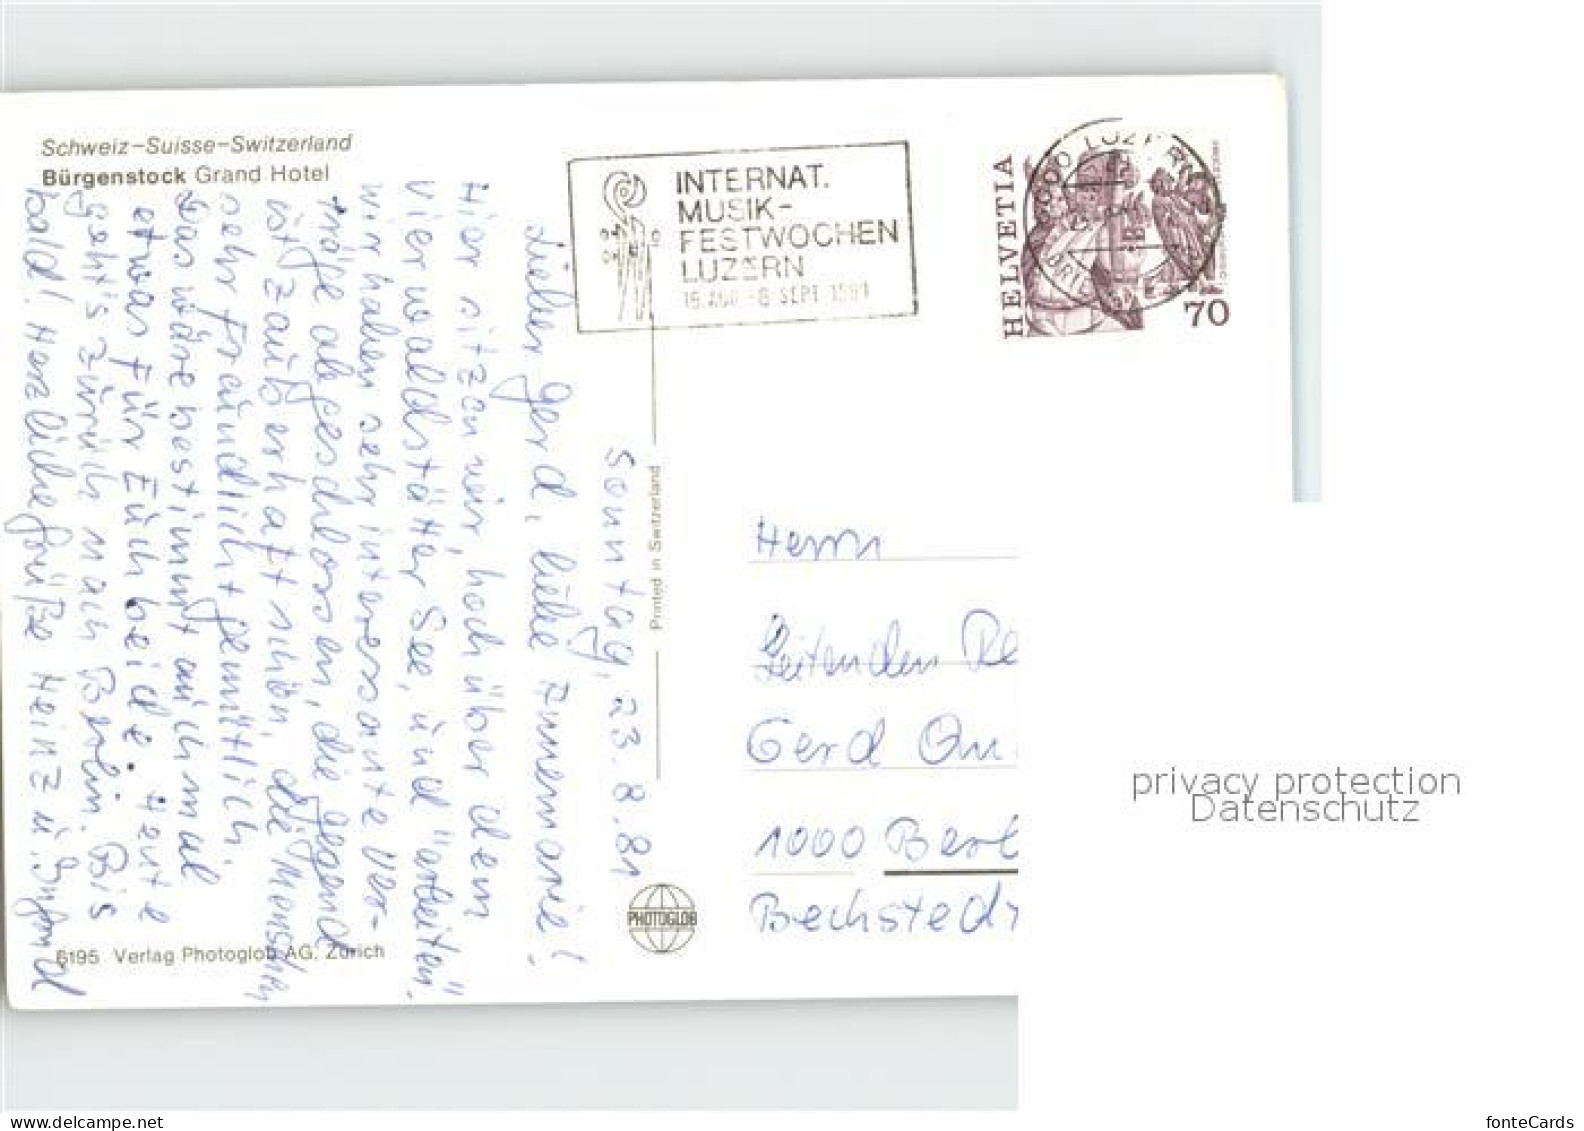 Schweiz-Suisse-Switzerland
Bürgenstock Grand Hotel
INTERNAT.
MUSIK-
FESTWOCHEN
LUZERN
15. AUG -8. SEPT 1981
HELVETIA
70
Sonntag, 23.8.81
Lieber Gerd, liebe Annemarie!
Hier sitzen wir, hoch über dem
Vierwaldstätter See, und "arbeiten".
Wir haben sehr interessante Ver-
träge abgeschlossen, die Gegend
ist zauberhaft schön, die Menschen
sehr freundlich + gemütlich.
Das wäre bestimmt auch mal
etwas für Euch beide. Heute
geht's zurück nach Berlin. Bis
bald! Herzliche Grüße Heinz u.
Printed in Switzerland
PHOTOGLOB
6195 Verlag Photoglob AG, Zürich
Herrn
Leitenden Re
Gerd
1000 Berl
Bechsted
privacy protection
Datenschutz
www.delcampe.net
fonteCards